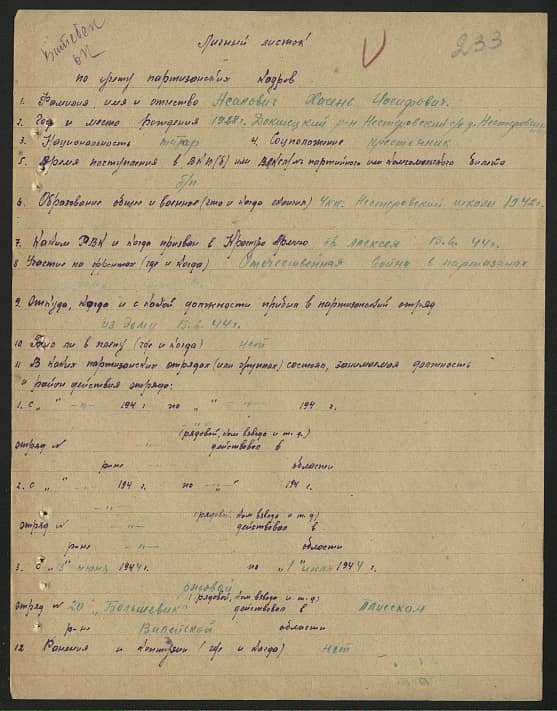 Витебск
233
Личный листок
по учету партизанских кадров
1. Фамилия имя и отчество Асанович Хасень Иосифович.
2. Год и место рождения 1928г. Докшицкий р-н Нестеровский с/с д. Нестеровщина
3. Национальность татар 4. Соцположение крестьянин
5. Время поступления в ВКП(б) или ВЛКСМ № партийного или комсомольского билета
б/п
6. Образование общее и военное (что и когда окончил) 4кл. Нестеровской школы 1942г.
7. Каким РВК и когда призван в Красную Армию 15.6.44г.
8 Участие на фронтах (где и когда) Отечественная война в партизанах
9. Откуда, когда и с какой должности прибыл в партизанский отряд
из дому 15.6.44г.
10 Был ли в плену (где и когда) нет
11 В каких партизанских отрядах (или группах) состоял, занимаемая должность
и район действия отряда:
1. с „ “ -„- 194 г по „ “ -„- 194 г.
(рядовой, ком взвода и т.д.)
отряд № действовал в
р-не области
2. с „ “ -„- 194 г. по -„- 194 г.
(рядовой, ком взвода и т.д)
отряд № -„- действовал в
р-не -„- области
3. с „15“ июня 1944г. по „1“ июля 1944 г.
рядовой
(рядовой, ком взвода и т.д)
отряд № 20 „Большевик“ действовал в Плисском
р-не Вилейской области
12 Ранения и контузии (где и когда) нет